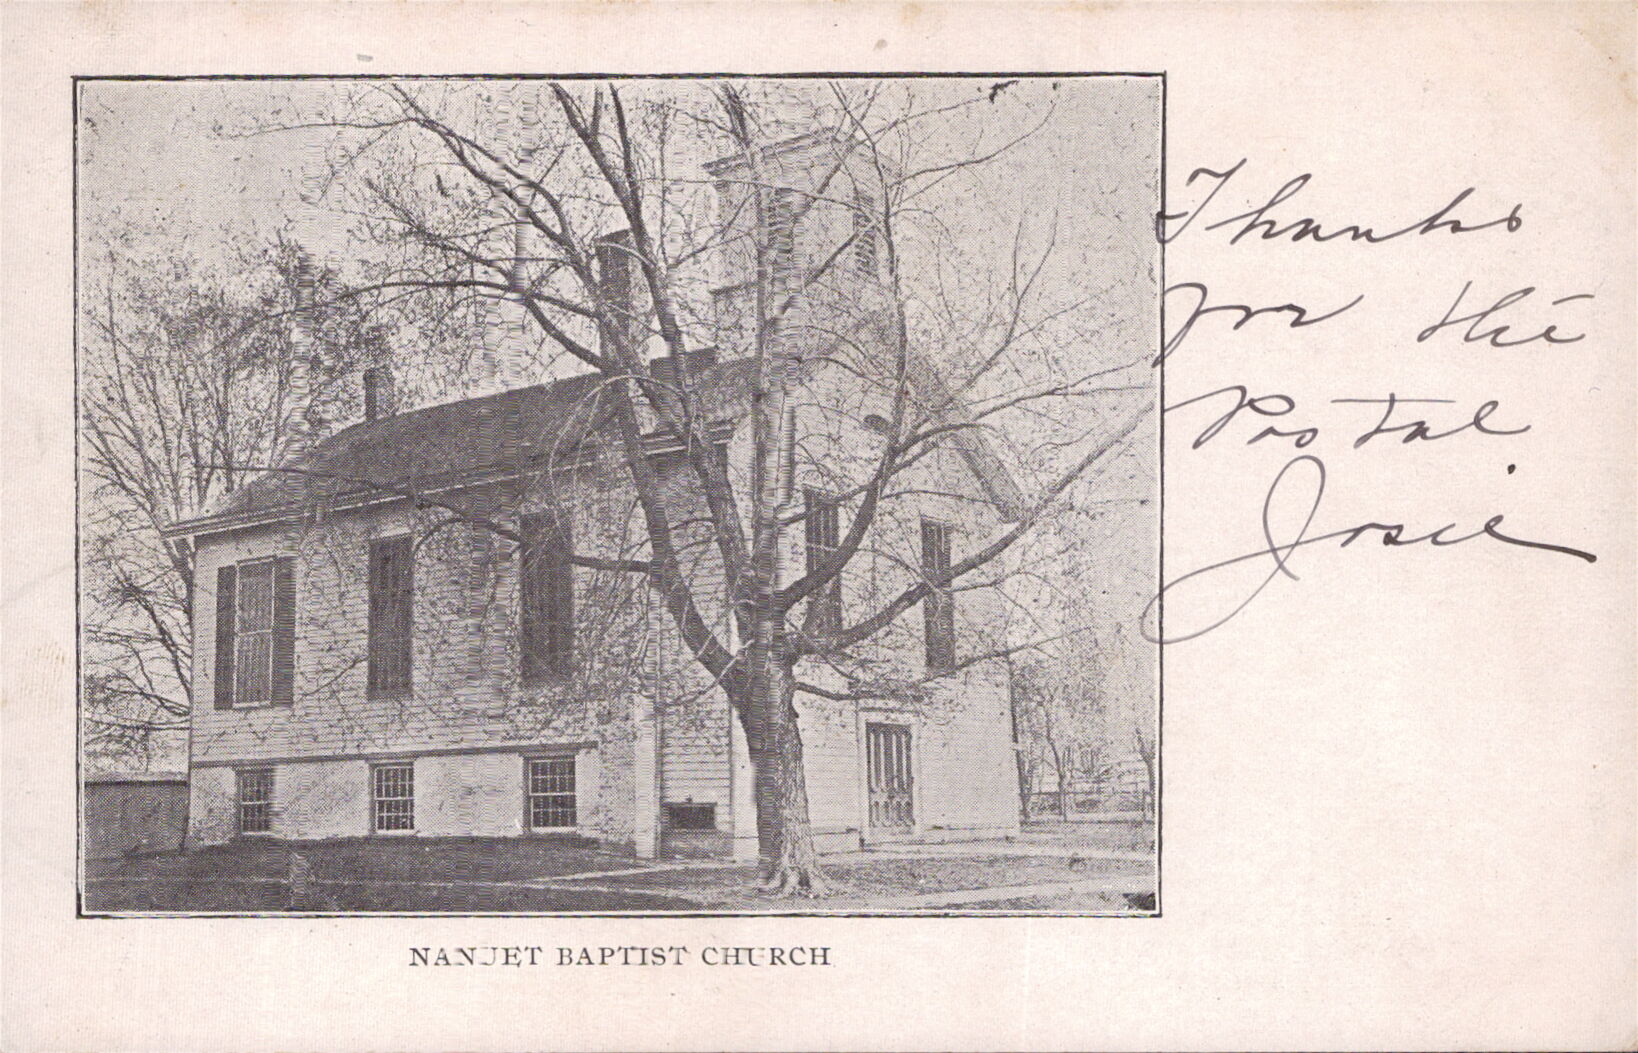 Thanks
for the
Postal
Josie
NANUET BAPTIST CHURCH